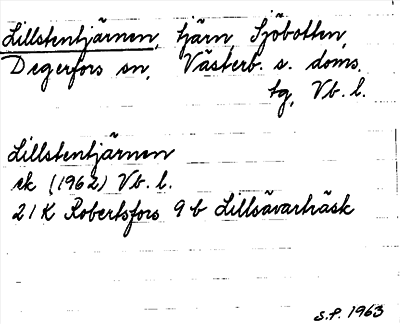 Lillstentjärnen, tjärn Sjöbotten,
Degerfors sn, Västerb. s. doms.
tg, Vb. l.
Lillstentjärnen
ek (1962) Vb. l.
21K Robertsfors 9b Lillsävarträsk
S.P. 1963